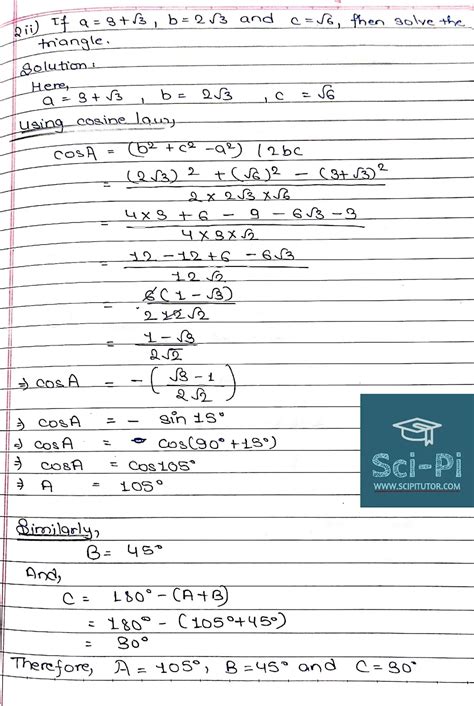 2ii) If a = 3+√3, b = 2√3 and c = √6, then solve the
triangle.
Solution:
Here,
a = 3+√3 , b = 2√3 , c = √6
Using cosine law,
cosA = (b² + c² - a²) / 2bc
= (2√3)² + (√6)² - (3+√3)² / 2×2√3×√6
= 4×3 + 6 - 9 - 6√3 - 3 / 4×3×√2
= 12 - 12 + 6 - 6√3 / 12√2
= 6(1 - √3) / 2 12√2
= 1 - √3 / 2√2
⇒ cosA = - (√3 - 1 / 2√2)
⇒ cosA = - sin 15°
⇒ cosA = cos(90° + 15°)
⇒ cosA = cos105°
⇒ A = 105°
Sci-Pi
WWW.SCIPITUTOR.COM
Similarly,
B = 45°
And,
C = 180° - (A+B)
= 180° - (105°+45°)
= 30°
Therefore, A = 105°, B = 45° and C = 30°